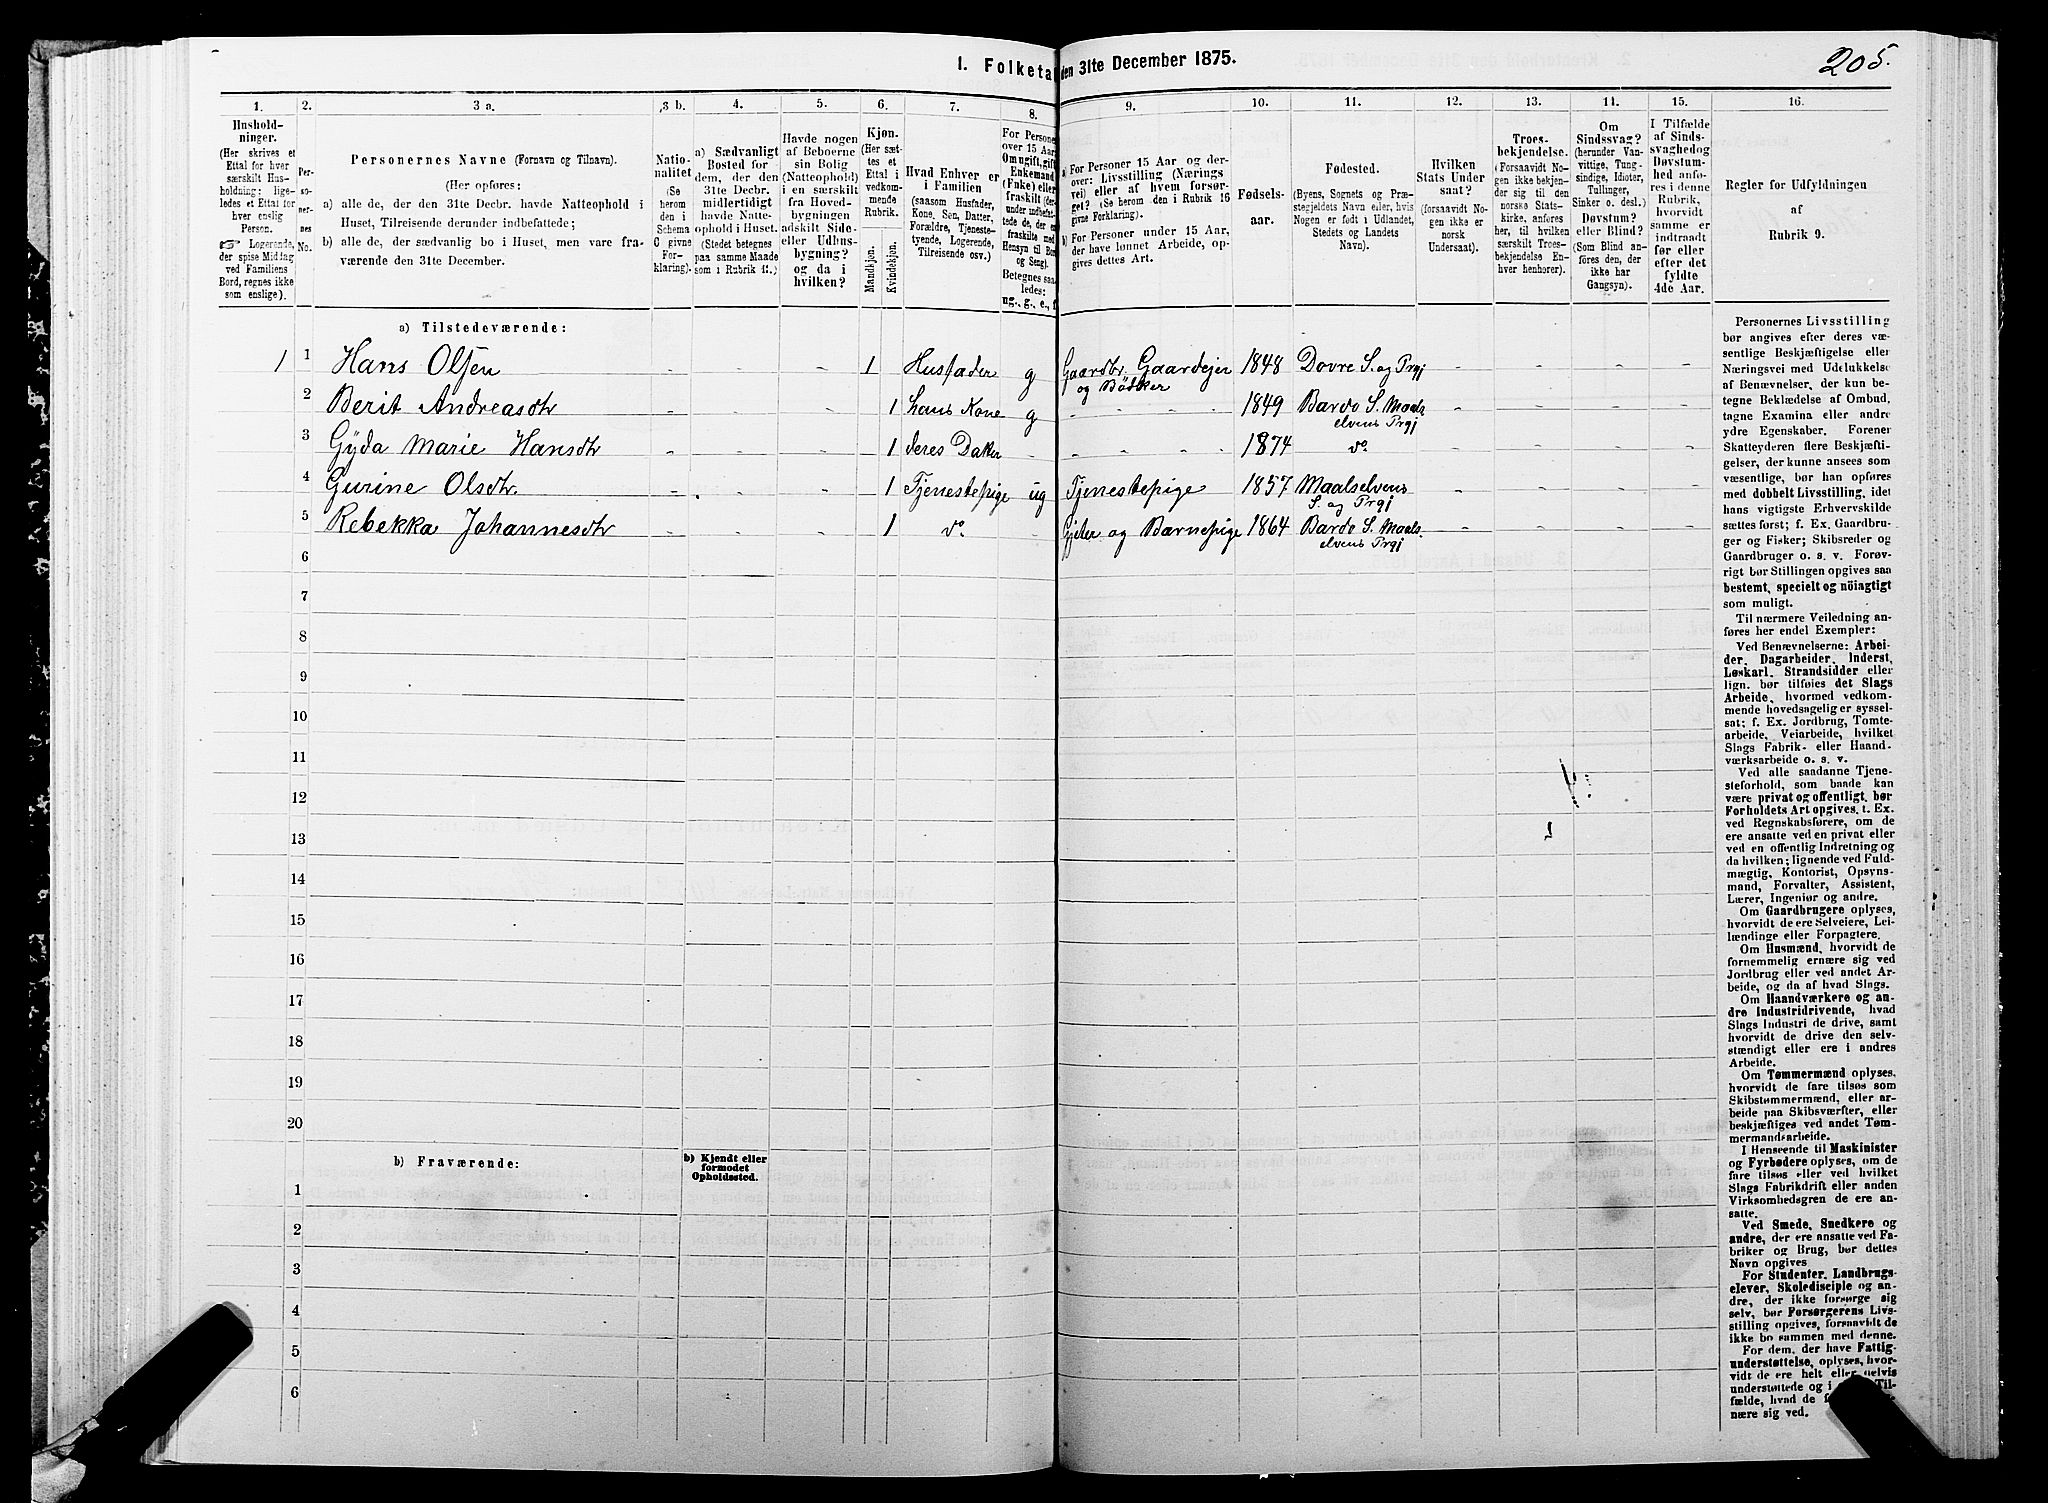 I. Folketal den 31te December 1875.
205.
1.
2.
3 a.
3 b.
4.
5.
6.
7.
8.
9.
10.
11.
12.
13.
14.
15.
16.
Hushold-
ninger.
(Her skrives et
Ettal for hver
særskilt Hus-
holdning; lige-
ledes et Ettal for
hver enslig
Person.
☞ Logerende,
der spise Middag
ved Familiens
Bord, regnes ikke
som enslige).
Per-
so-
ner-
nes
No.
Personernes Navne (Fornavn og Tilnavn).
(Her opføres:
a) alle de, der den 31te Decbr. havde Natteophold i
Huset, Tilreisende derunder indbefattede;
b) alle de, der sædvanlig bo i Huset, men vare fra-
værende den 31te December).
Natio-
nalitet
(Se
herom
den i
Schema
C givne
For-
klaring).
a) Sædvanligt
Bosted for
dem, der den
31te Decbr.
midlertidigt
havde Natte-
ophold i Huset.
(Stedet betegnes
paa samme Maade
som i Rubrik 11.)
Havde nogen
af Beboerne
sin Bolig
(Natteophold)
i en særskilt
fra Hoved-
bygningen
adskilt Side-
eller Udhus-
bygning?
og da i
hvilken?
Kjøn.
(Her sæt-
tes et
Ettal i
vedkom-
mende
Rubrik.
Mandkjøn.
Kvindekjøn.
Hvad Enhver er
i Familien
(saasom Husfader,
Kone, Søn, Datter,
Forældre, Tjeneste-
tyende, Logerende,
Tilreisende osv.)
For Personer
over 15 Aar:
Om ugift, gift,
Enkemand
(Enke) eller
fraskilt
Betegnes saa-
ledes:
ug., g., e., f.
a) For Personer 15 Aar og der-
over: Livsstilling (Nærings-
vei) eller af hvem forsør-
get? (Se herom den i Rubrik 16
givne Forklaring.)
b) For Personer under 15 Aar,
der have lønnet Arbeide, op-
gives dettes Art.
Fødsels-
aar.
Fødested.
(Byens, Sognets og Præ-
stegjeldets Navn eller, hvis
Nogen er født i Udlandet,
Stedets og Landets
Navn).
Hvilken
Stats Under
saat?
(forsaavidt No-
gen ikke er
norsk
Undersaat).
Troes-
bekjendelse.
(Forsaavidt No-
gen ikke bekjen-
der sig til den
norske Stats-
kirke, anføres
her, til hvilken
særskilt Troes-
bekjendelse En-
hver henhører).
Om
Sindssvag?
(herunder Van-
vittige, Tung-
sindige, Idioter,
Tullinger,
Sinker o. desl.)
Døvstum?
eller Blind?
(Som Blind an-
føres den, der
ikke har
Gangsyn).
I Tilfælde
af Sinds-
svaghed og
Døvstum-
hed anfø-
res i denne
Rubrik,
hvorvidt
samme er
indtraadt
før eller
efter det
fyldte
4de Aar.
Regler for Udfyldningen
af
Rubrik 9.
a) Tilstedeværende:
1 1 Hans Olsen - - - 1 Husfader g Gaardbr. Gaardejer og Bødker 1848 Dovre S. og Prgj - - - -
2 Berit Andreasdtr - - - 1 hans Kone g - - - - 1849 Bardo S. Maals elvens Prgj - - - -
3 Gÿda Marie Hansdtr - - - 1 deres Datter - - - - - 1874 do - - - -
4 Gurine Olsdtr. - - - 1 Tjenestepige ug Tjenestepige 1857 Maalselvens S. og Prgj - - - -
5 Rebekka Johannesdtr - - - 1 do - Gjeter og Barnepige 1864 Bardo S. Maals. elvens Prgj - - - -
6
7
8
9
10
11
12
13
14
15
16
17
18
19
20
b) Fraværende:
b) Kjendt eller
formodet
Opholdssted.
1
2
3
4
5
6
Personernes Livsstilling
bør angives efter deres væ-
sentlige Beskjæftigelse eller
Næringsvei med Udelukkelse
af Benævnelser, der kun be-
tegne Beklædelse af Ombud,
tagne Examina eller andre
ydre Egenskaber. Forener
Skatteyderen flere Beskjæfti-
gelser, der kunne ansees som
væsentlige, bør han opføres
med dobbelt Livsstilling, idet
hans vigtigste Erhvervskilde
sættes først; f. Ex. Gaardbru-
ger og Fisker; Skibsreder og
Gaardbruger o. s. v. Forøv-
rigt bør Stillingen opgives saa
bestemt, specielt og nöiagtigt
som muligt.
Til nærmere Veiledning an-
føres her endel Exempler:
Ved Benævnelserne: Arbei-
der, Dagarbeider, Inderst,
Løskarl, Strandsidder eller
lign. bør tilføies det Slags
Arbeide, hvormed vedkom-
mende hovedsagelig er syssel-
sat; f. Ex. Jordbrug, Tomte-
arbeide, Veiarbeide, hvilket
Slags Fabrik- eller Haand-
værksarbeide o. s. v.
Ved alle saadanne Tjene-
steforhold, som baade kan
være privat og offentligt, bør
Forholdets Art opgives, t. Ex.
ved Regnskabsførere, om de
ere ansatte ved en privat eller
ved en offentlig Indretning og
da hvilken; lignende ved Fuld-
mægtig, Kontorist, Opsyns-
mand, Forvalter, Assistent,
Lærer, Ingeniør og andre.
Om Gaardbrugere oplyses,
hvorvidt de ere Selveiere, Lei-
lændinge eller Forpagtere.
Om Husmænd, hvorvidt de
fornemmelig ernære sig ved
Jordbrug eller ved andet Ar-
beide, og da af hvad Slags.
Om Haandværkere og an-
dre Industridrivende, hvad
Slags Industri de drive, samt
hvorvidt de drive den selv-
stændigt eller ere i andres
Arbeide.
Om Tømmermænd oplyses,
hvorvidt de fare tilsøs som
Skibstømmermænd, eller ar-
beide paa Skibsværfter, eller
beskjæftiges ved andet Tøm-
mermandsarbeide.
I Henseende til Maskinister
og Fyrbødere oplyses, om de
fare tilsøs eller ved hvilket
Slags Fabrikdrift eller anden
Virksomhedsgren de ere an-
satte.
Ved Smede, Snedkere og
andre, der ere ansatte ved Fa-
briker og Brug, bør dettes
Navn opgives
For Studenter, Landbrugs-
elever, Skoledisciple og an-
dre, der ikke forsørge sig
selv, bør Forsørgerens Livs-
stilling opgives, forsaavidt de
ikke bo sammen med denne.
For dem, der have Fattig-
understøttelse, oplyses, hvor-
vidt de ere helt eller delvis
understøttede og i Til-
fælde, hvad de
nære sig ved.